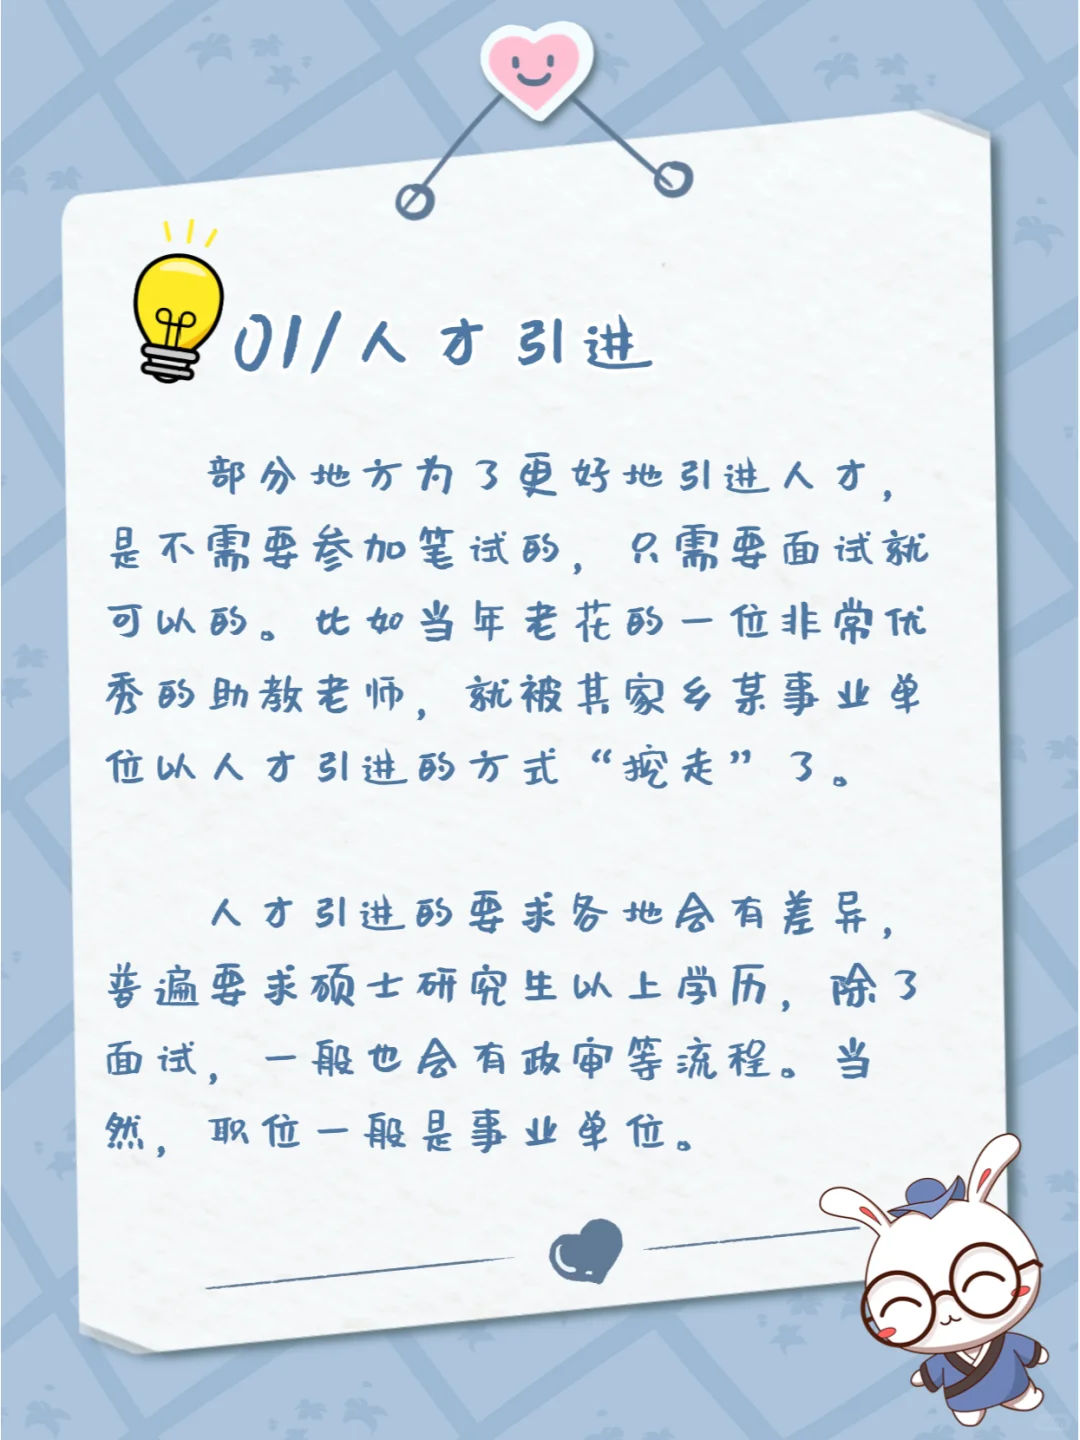 01/人才引进
部分地方为了更好地引进人才，
是不需要参加笔试的，只需要面试就
可以的。比如当年老花的一位非常优
秀的助教老师，就被其家乡某事业单
位以人才引进的方式“挖走”了。
人才引进的要求各地会有差异，
普遍要求硕士研究生以上学历，除了
面试，一般也会有政审等流程。当
然，职位一般是事业单位。